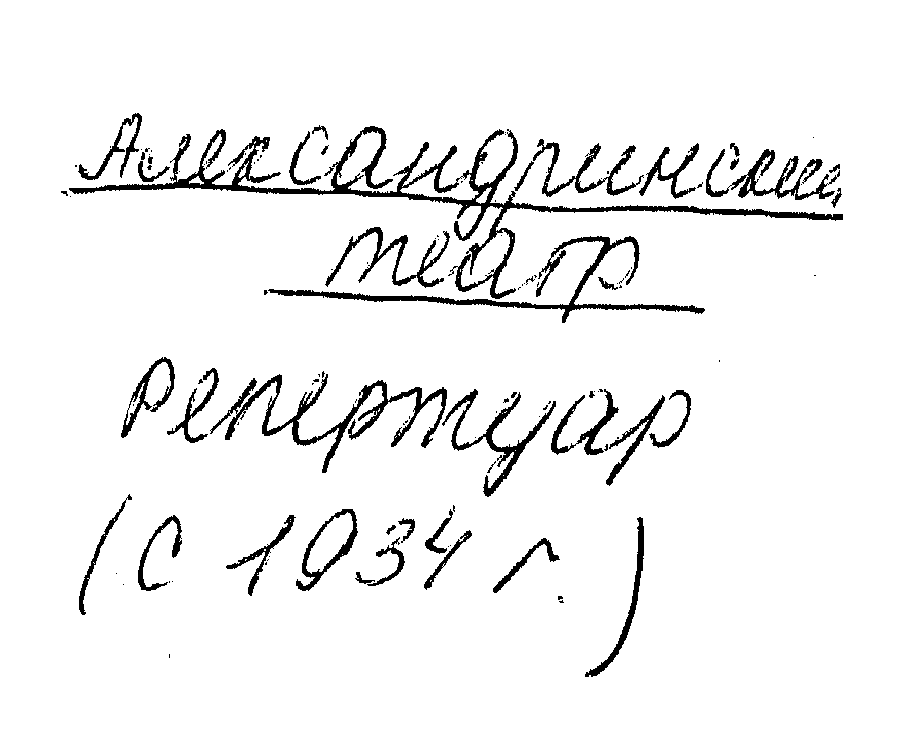 Александринский
театр
Репертуар
(с 1934 г.)